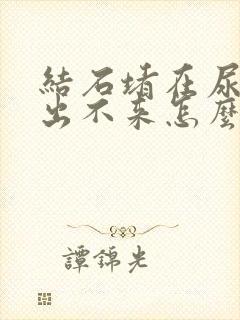 結石堵在尿
出不來怎麼
譚錦光